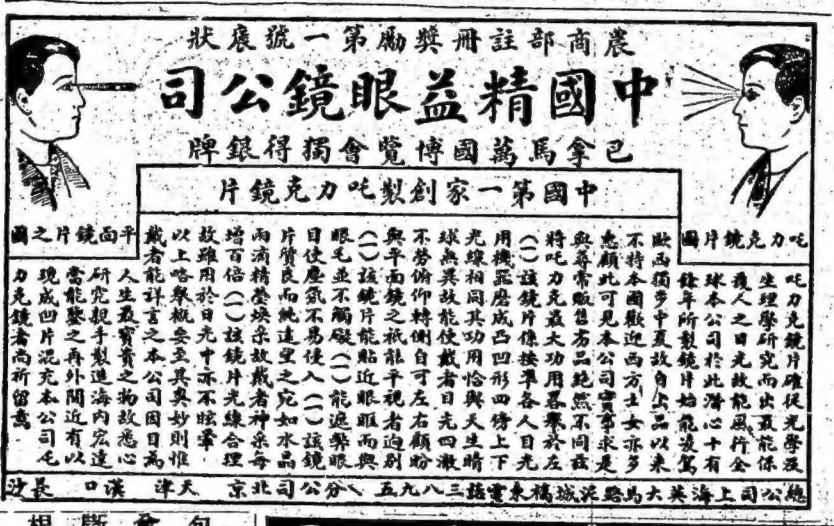 農商部註冊獎勵第一號襃狀
中國精益眼鏡公司
巴拿馬萬國博覽會獨得銀牌
中國第一家創製吒力克鏡片
吒力克鏡片圖
平面鏡片之圖
吒力克鏡片確從光學及
生理學研究而出最能保
護人之目光故能風行全
球本公司於此潛心十有
餘年所製鏡片始能凌駕
歐西獨步中夏故自出品以來
不特本國歡迎西方士女亦多
惠顧此可見本公司實事求是
與尋常販售劣品絕然不同茲
將吒力克最大功用畧舉於左
(一)該鏡片係按準各人目光
用機器磨成凸凹形四傍上下
光線相同其功用恰與天生睛
球無異故能使戴者目光四澈
不勞俯仰轉側自可左右顧盼
與平面鏡之祇能平視者迥別
(一)該鏡片能貼近眼眶而與
眼毛並不觸礙(一)能遮眼
目使塵氛不易侵入(一)該鏡
片質良而純遠望之宛如水晶
兩滴精瑩煥采故戴者神采每
增百倍(一)該鏡片光線合理
故雖用於日光中亦不眩暈
以上略舉概要至其奧妙則惟
戴者能詳言之本公司因目為
人生最寶貴之物故悉心
研究親手製造海內宏達
當能鑒之再外間近有以
現成凹片混充本公司吒
力克鏡者尚祈留意
總公司上海英大馬路泥城橋東電話三八九五 分公司北京 天津 漢口 長沙